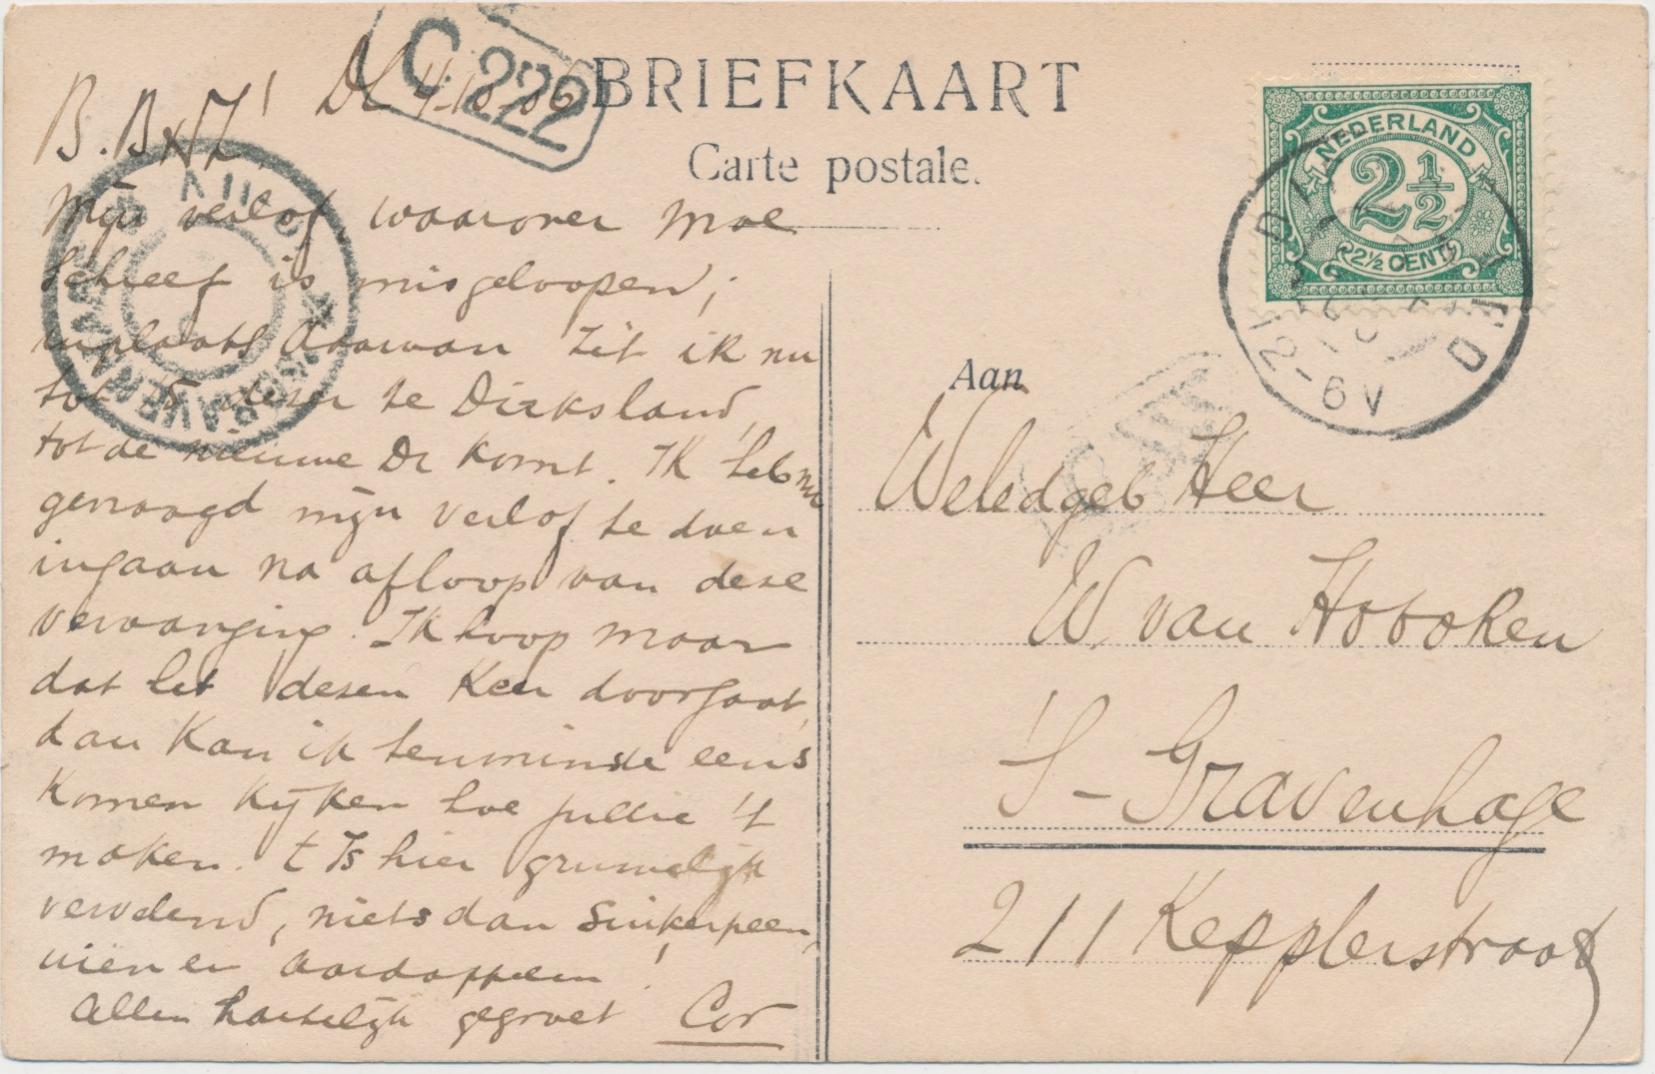 BRIEFKAART
Carte postale.
C 222
B. B & Z!
Mijn verlof waarover Moe
schreef is misgeloopen;
inplaats daarvan zit ik nu
tot deser te Dirksland,
tot de nieuwe Dr komt. Ik heb nu
gevraagd mijn verlof te doen
ingaan na afloop van deze
vervanging. Ik hoop maar
dat het dezen Keer doorgaat,
dan Kan ik tenminste eens
Komen Kijken hoe jullie 't
maken. t Is hier gruwelijk
vervelend, niets dan Suikerpeen,
uien en aardappelen!
Allen hartelijk gegroet Cor
NEDERLAND
2½
2½ CENT
2-6V
Aan
Weledgeb Heer
W. van Hoboken
'S-Gravenhage
211 Kepplerstraat